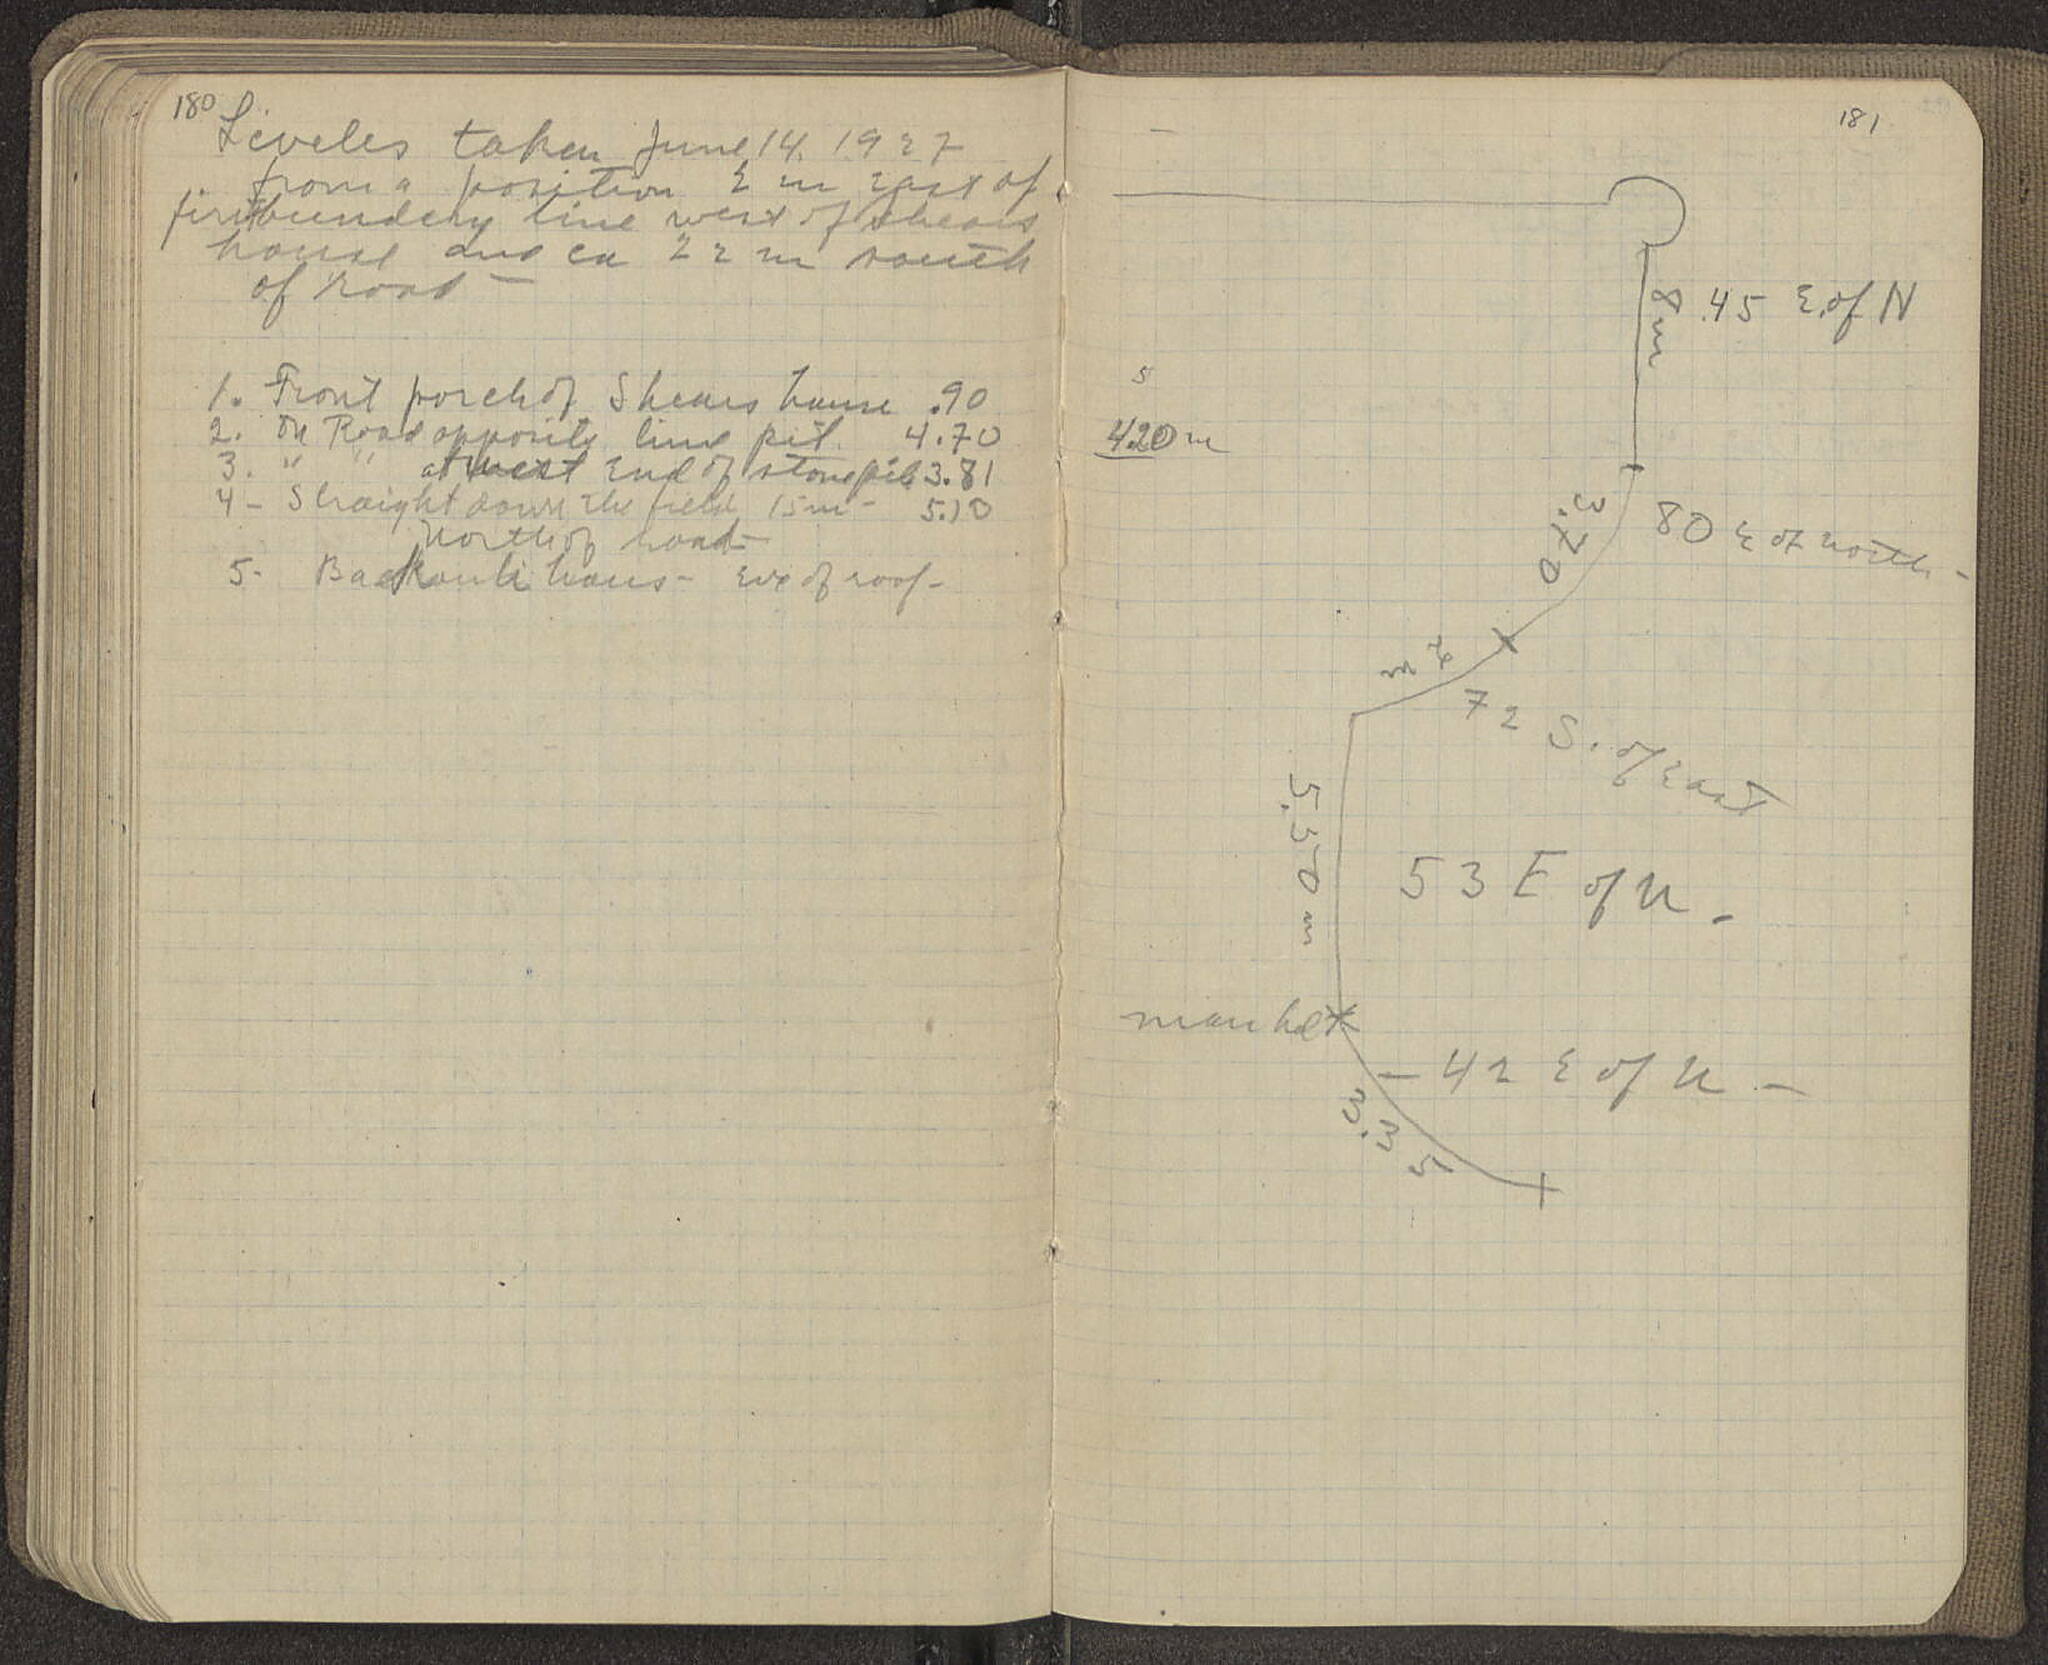 180
Leveles taken June 14. 1927
from a position 2 m east of
first boundery line west of Shears
house and ca 22 m south
of road —
1. Front porch of Shears house .90
2. On Road opposity lime pit. 4.70
3. " " at west end of stone pile 3.81
4 - Straight down the field 15 m - 5.10
North of road -
5. Back haus - Eve of roof -
181
8 m
.45 E. of N
5
420 m
3.70
80 E of north -
2 m
72 S. of East
5.50 m
53 E of N -
man hol
- 42 E of N -
3.35